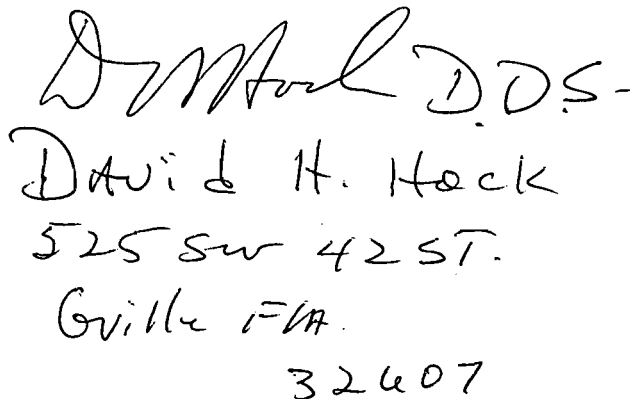 D H Hock D.D.S.
David H. Hock
525 SW 42 ST.
Gville FlA.
32607